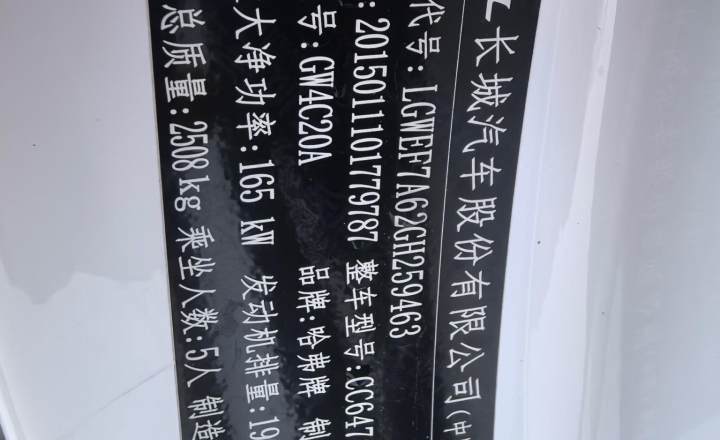 长城汽车股份有限公司(中
代号:LGWEF7A62GH259463
:201501110179787 整车型号:CC647
号:GW4C20A 品牌:哈弗牌 制
大净功率:165 kW 发动机排量:19
总质量:2508kg 乘坐人数:5人 制造